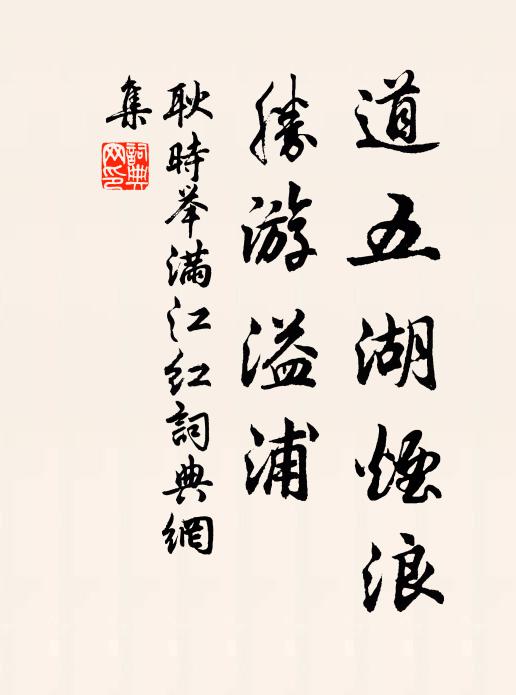 道五湖煙浪
勝游溢浦
耿時举滿江红詞典網
集
詞典網印